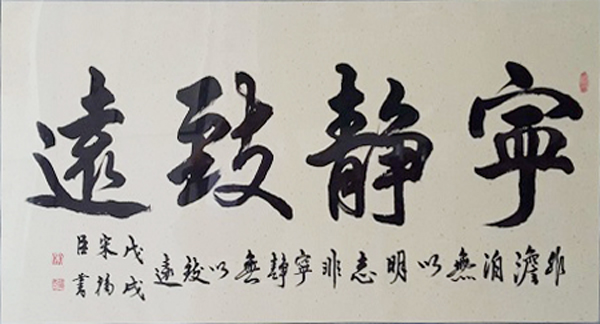 寧静致遠
非澹泊無以明志非寧静無以致遠
戊戌
宋
臣書